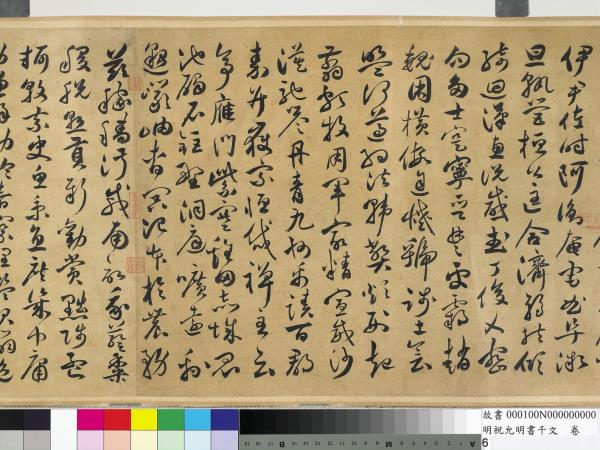 伊尹佐時阿衡奄宅曲阜微
旦孰營桓公匡合濟弱扶傾
綺迴漢惠說感武丁俊乂密
勿多士寔寧晉楚更霸趙
魏困橫假途滅虢踐土會
盟何遵約法韓弊煩刑起
翦頗牧用軍最精宣威沙
漠馳譽丹青九州禹跡百郡
秦并嶽宗恆岱禪主云
亭雁門紫塞雞田赤城昆
池碣石鉅野洞庭曠遠綿
邈巖岫杳冥治本於農務
茲稼穡俶載南畝我藝黍
稷稅熟貢新勸賞黜陟孟
軻敦素史魚秉直庶幾中庸
故書 000100N000000000
明祝允明書千文 卷
6